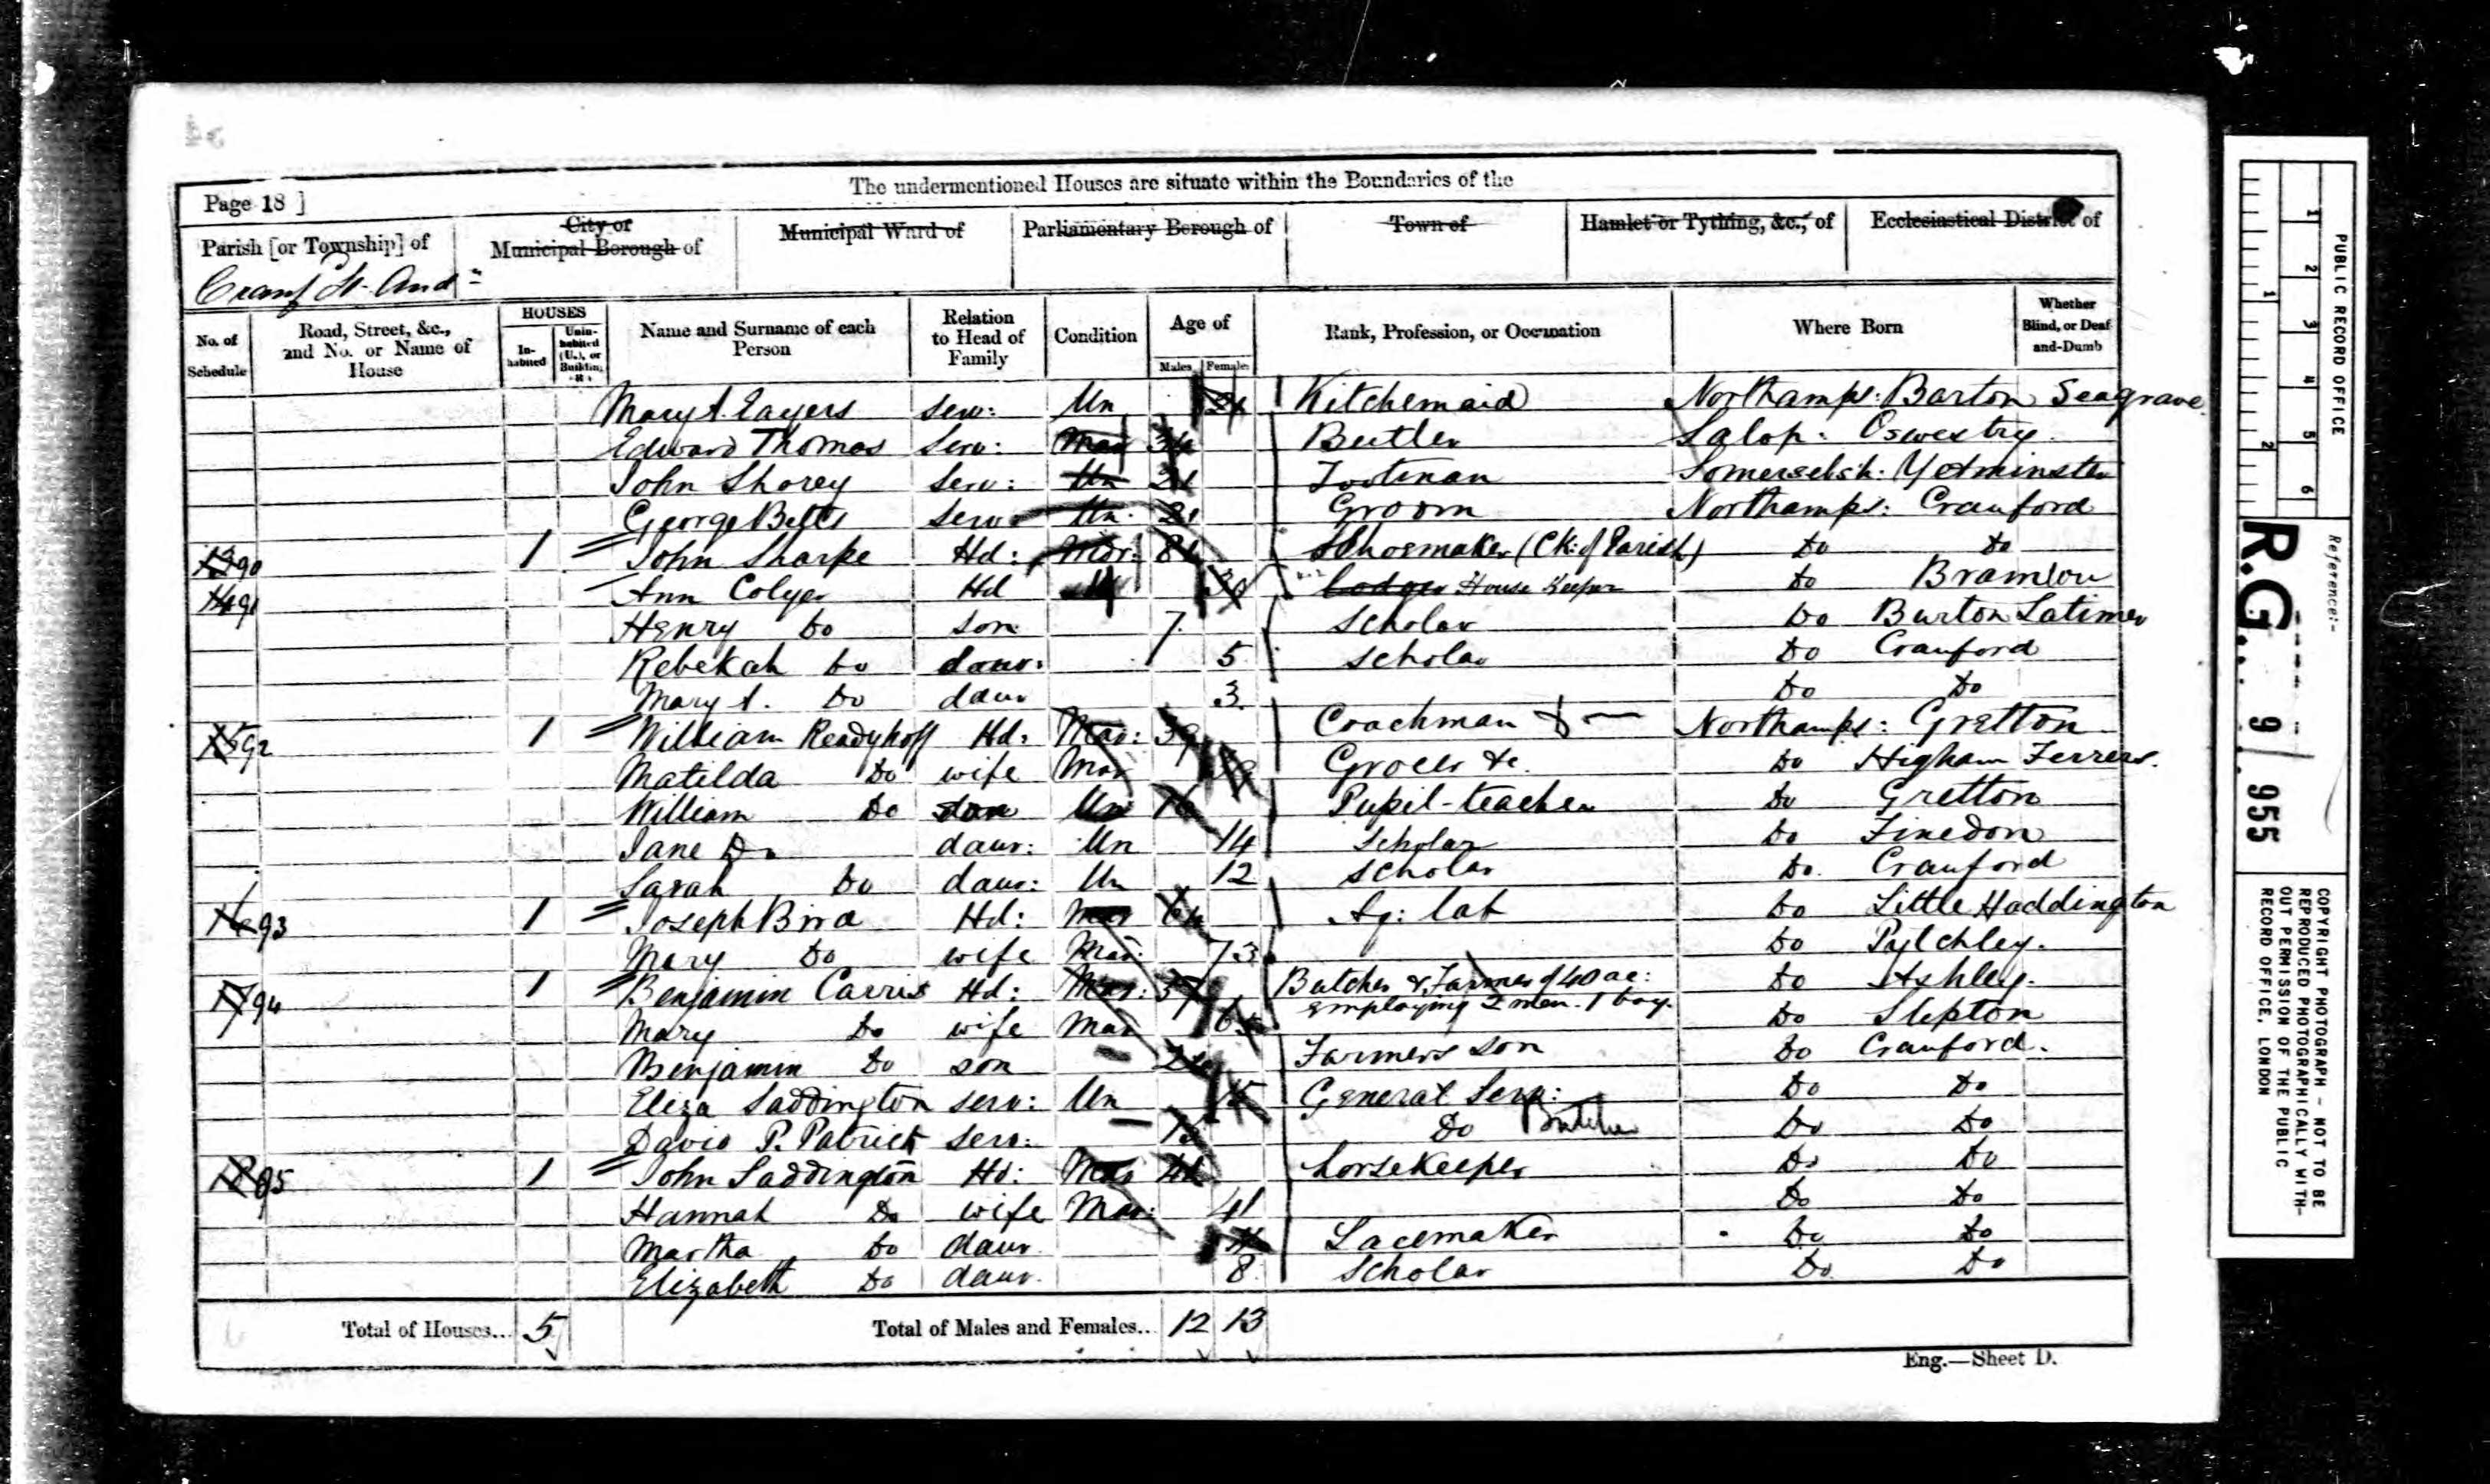 The undermentioned Houses are situate within the Boundaries of the
Page 18 ]
Parish [or Township] of
City or Municipal Borough of
Municipal Ward of
Parliamentary Borough of
Town of
Hamlet or Tything, &c., of
Ecclesiastical District of
Cranf St. And=
No. of Schedule
Road, Street, &c., and No. or Name of House
HOUSES
In-habited
Unin-habited (U.), or Building (B.)
Name and Surname of each Person
Relation to Head of Family
Condition
Age of
Males
Females
Rank, Profession, or Occupation
Where Born
Whether Blind, or Deaf-and-Dumb
Mary A. Eayers serv: Un 24 Kitchenmaid Northamps: Barton Seagrave
Edward Thomas Serv: Mar 34 Butler Salop: Oswestry
John Shorey Serv: Un 21 Footman Somersetsh: Yetminster
George Betts Serv Un 21 Groom Northamps: Cranford
90 1 John Sharpe Hd: Shoemaker (Ck: of Parish) Do Do
91 Ann Colyer Hd 30 Lodger House Keeper Do
Henry Do son 7 Scholar Do Burton Latimer
Rebekah Do daur: 5 scholar Do Cranford
Mary A. Do daur 3 Do Do
92 1 William Readyhoff Hd: Mar: 39 Coachman & Northamps: Gretton
Matilda Do wife Mar Grocer &c. Do Higham Ferrers.
William Do son Un 16 Pupil-teacher Do Gretton
Jane Do daur: Un 14 Scholar Do Finedon
Sarah Do daur: Un 12 scholar Do. Cranford
93 1 Joseph Bird Hd: Mar Ag: lab Do Little Haddington
Mary Do wife Mar: 73 Do Pytchley.
94 1 Benjamin Carris Hd: Mar: 57 Butcher & Farmer of 40 ac: Do Ashley.
employing 2 men. 1 boy.
Mary Do wife Mar Do Slipton
Benjamin Do son Farmers son Do Cranford.
Eliza Saddington serv: Un 15 General Serv: Do Do
David P. Patrick serv: Do Butcher Do Do
95 1 John Saddington Hd: Mar horsekeeper Do Do
Hannah Do wife Mar: 41 Do Do
Martha Do daur Lacemaker Do Do
Elizabeth Do daur. 8 scholar Do Do
Total of Houses... 5
Total of Males and Females... 12 13
Eng.—Sheet D.
PUBLIC RECORD OFFICE
1 2 3 4 5 6
1 2
Reference:-
R.G. 9/955
COPYRIGHT PHOTOGRAPH - NOT TO BE
REPRODUCED PHOTOGRAPHICALLY WITH-
OUT PERMISSION OF THE PUBLIC
RECORD OFFICE, LONDON